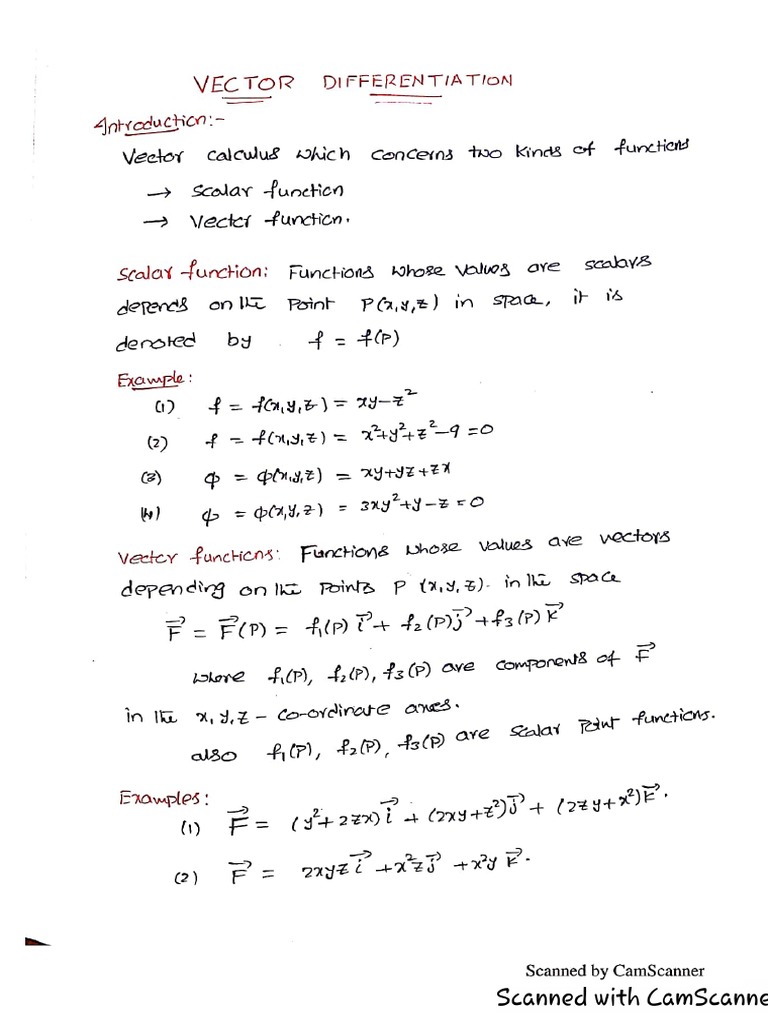 VECTOR DIFFERENTIATION
Introduction:-
Vector calculus which concerns two kinds of functions
→ Scalar function
→ Vector function.
Scalar function: Functions whose values are scalars
depends on the point P(x,y,z) in space, it is
denoted by f = f(P)
Example:
(1) f = f(x,y,z) = xy-z²
(2) f = f(x,y,z) = x²+y²+z²-9=0
(3) ϕ = ϕ(x,y,z) = xy+yz+zx
(4) ϕ = ϕ(x,y,z) = 3xy²+y-z=0
Vector functions: Functions whose values are vectors
depending on the points P (x,y,z). in the space
F⃗ = F⃗(P) = f₁(P) i⃗ + f₂(P) j⃗ + f₃(P) k⃗
where f₁(P), f₂(P), f₃(P) are components of F⃗
in the x,y,z - co-ordinate axes.
also f₁(P), f₂(P), f₃(P) are scalar point functions.
Examples:
(1) F⃗ = (y²+2zx) i⃗ + (2xy+z²) j⃗ + (2zy+x²) k⃗.
(2) F⃗ = 2xyz i⃗ + x²z j⃗ + x²y k⃗.
Scanned by CamScanner
Scanned with CamScanne